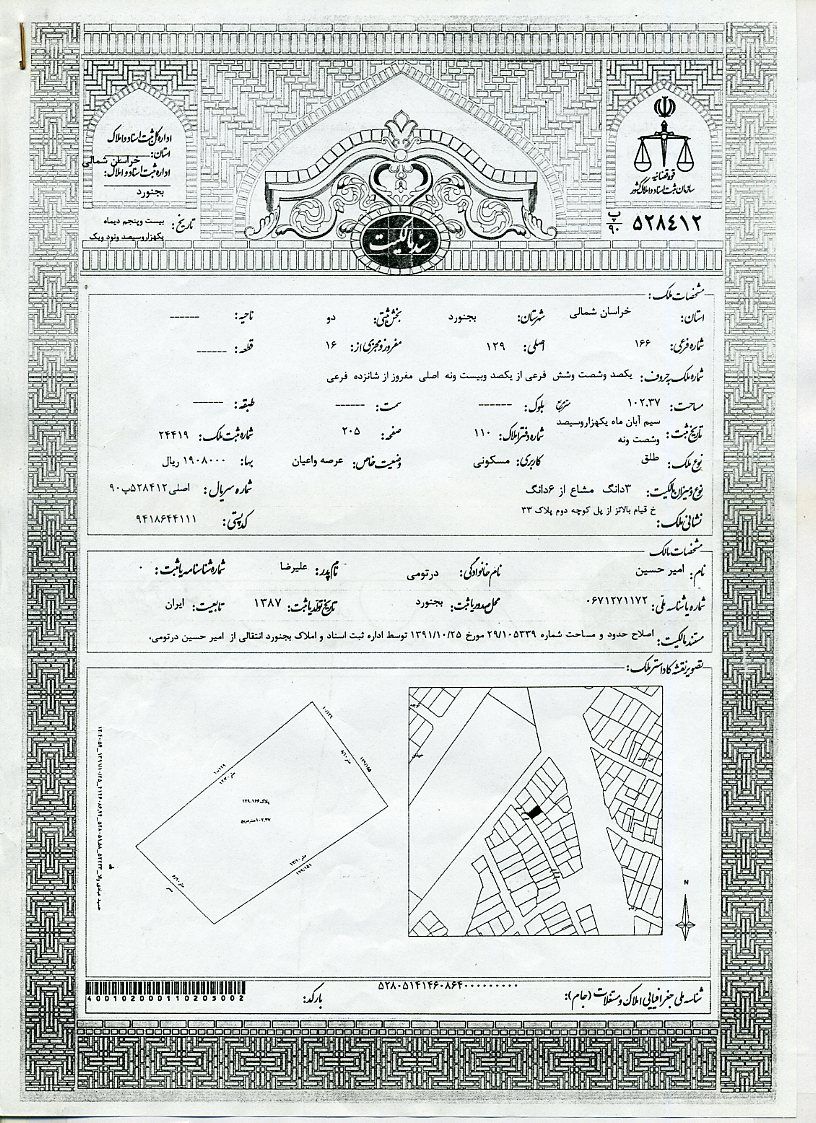 قوه قضائیه
سازمان ثبت اسناد و املاک کشور
۵۲۸۴۱۲ پ ۹۰
سند مالکیت
اداره کل ثبت اسناد و املاک
استان: خراسان شمالی
اداره ثبت اسناد و املاک:
بجنورد
تاریخ: بیست وپنجم دیماه
یکهزاروسیصد ونود ویک
مشخصات ملک:
استان: خراسان شمالی شهرستان: بجنورد بخش ثبتی: دو ناحیه: ------
شماره فرعی: ۱۶۶ اصلی: ۱۲۹ مفروز و مجزی از: ۱۶ قطعه: ------
شماره ملک بحروف: یکصد وشصت وشش فرعی از یکصد وبیست ونه اصلی مفروز از شانزده فرعی
مساحت: ۱۰۲.۳۷ مترمربع بلوک: ------ سمت: ------ طبقه: ------
تاریخ ثبت: سیم آبان ماه یکهزاروسیصد وشصت ونه شماره دفتر املاک: ۱۱۰ صفحه: ۲۰۵ شماره ثبت ملک: ۲۴۴۱۹
نوع ملک: طلق کاربری: مسکونی وضعیت خاص: عرصه واعیان بهاء: ۱۹۰۸۰۰۰ ریال
نوع و میزان مالکیت: ۳دانگ مشاع از ۶دانگ شماره سریال: اصلی۵۲۸۴۱۲پ۹۰
نشانی ملک: خ قیام بالاتر از پل کوچه دوم پلاک ۳۳ کد پستی: ۹۴۱۸۶۴۴۱۱۱
مشخصات مالک
نام: امیر حسین نام خانوادگی: درتومی نام پدر: علیرضا شماره شناسنامه یا ثبت: ۰
شماره یا شناسه ملی: ۰۶۷۱۲۷۱۱۷۲ محل صدور یا ثبت: بجنورد تاریخ تولد یا ثبت: ۱۳۸۷ تابعیت: ایران
مستند مالکیت: اصلاح حدود و مساحت شماره ۲۹/۱۰۵۳۳۹ مورخ ۱۳۹۱/۱۰/۲۵ توسط اداره ثبت اسناد و املاک بجنورد انتقالی از امیر حسین درتومی.
تصویر نقشه کاداستر ملک:
پلاک ۱۶۶-۱۲۹
N
شناسه ملی جغرافیایی املاک و مستغلات (جام): ۵۲۸۰۵۱۴۱۴۶۰۸۶۴۰۰۰۰۰۰۰۰۰
بارکد: 400102000110203002